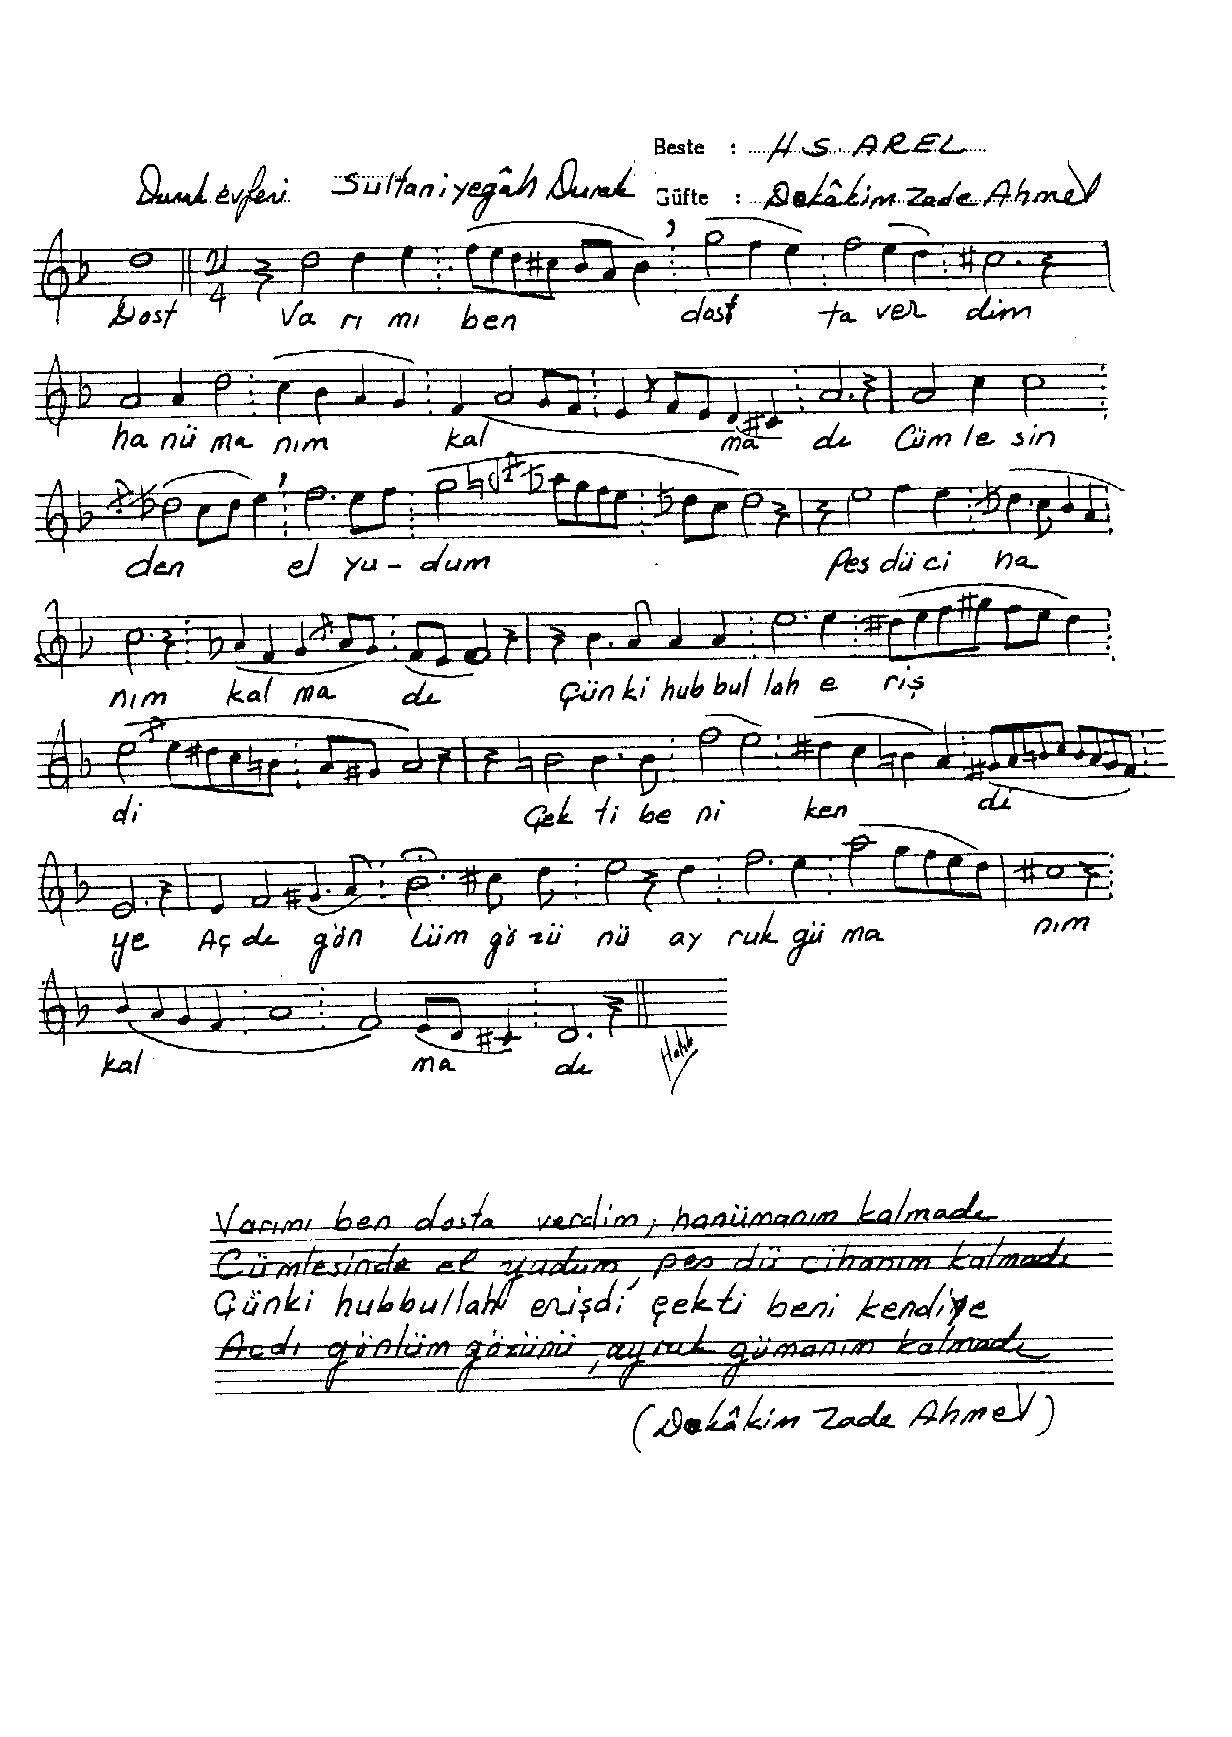 Beste : H S AREL
Durak evferi Sultaniyegâh Durak Güfte : Dekâkim Zade Ahmed
21
4
Dost Va rı mı ben dost ta ver dim
ha nü ma nım kal ma de Cüm le sin
den el yu - dum Pes dü ci ha
nım kal ma de Çün ki hub bul lah e riş
di Çek ti be ni ken di
ye Aç de gön lüm gö zü nü ay ruk gü ma nım
kal ma de
Varımı ben dosta verdim, hanümanım kalmadı
Cümlesinde el yudum, pes dü cihanım kalmadı
Çünki hubbullah erişdi çekti beni kendiye
Açdı gönlüm gözünü, ayruk gümanım kalmadı
(Dekâkim Zade Ahmed)